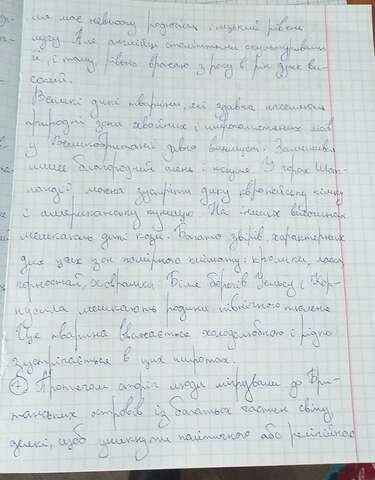 ля має невисоку родючість і низький рівень
лугу. Але англійці століттями окультурювали
її, і тому рівень врожаю з року в рік дуже ви-
сокий.
Великі дикі тварини, які здавна населяли
природні зони хвойних і широколистяних лісів
у Великобританії давно винищені. Залишився
лише благородний олень і козуля. У горах Шот-
ландії можна зустріти дику європейську кішку
і американську куницю. На інших височинах
мешкають дикі кози. Багато звірів, характерних
для усіх зон помірного клімату: кролики, ласка
горностай, ховрашка. Біля берегів Уельсу і Кор-
нуолла мешкають родини північного тюленя
Ця тварина вважається холодолюбною і рідко
зустрічається в цих широтах.
Протягом сторіч люди мігрували до Бри-
танських островів із багатьох частин світу,
деякі, щоб уникнути політичного або релігійного